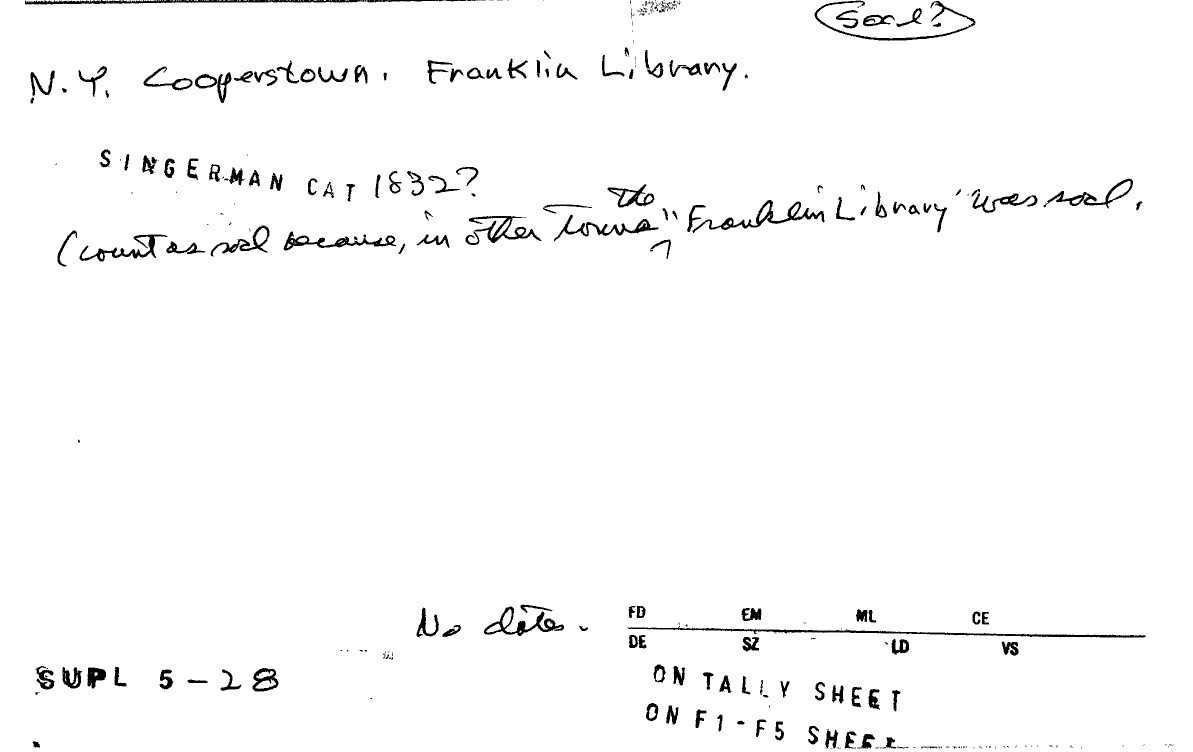 Socl?
N.Y. Cooperstown. Franklin Library.
SINGERMAN CAT 1832?
(count as socl because, in other towns the "Franklin Library" was socl.
No dates.
FD EM ML CE
DE SZ LD VS
SUPL 5-28
ON TALLY SHEET
ON F1-F5 SHEET